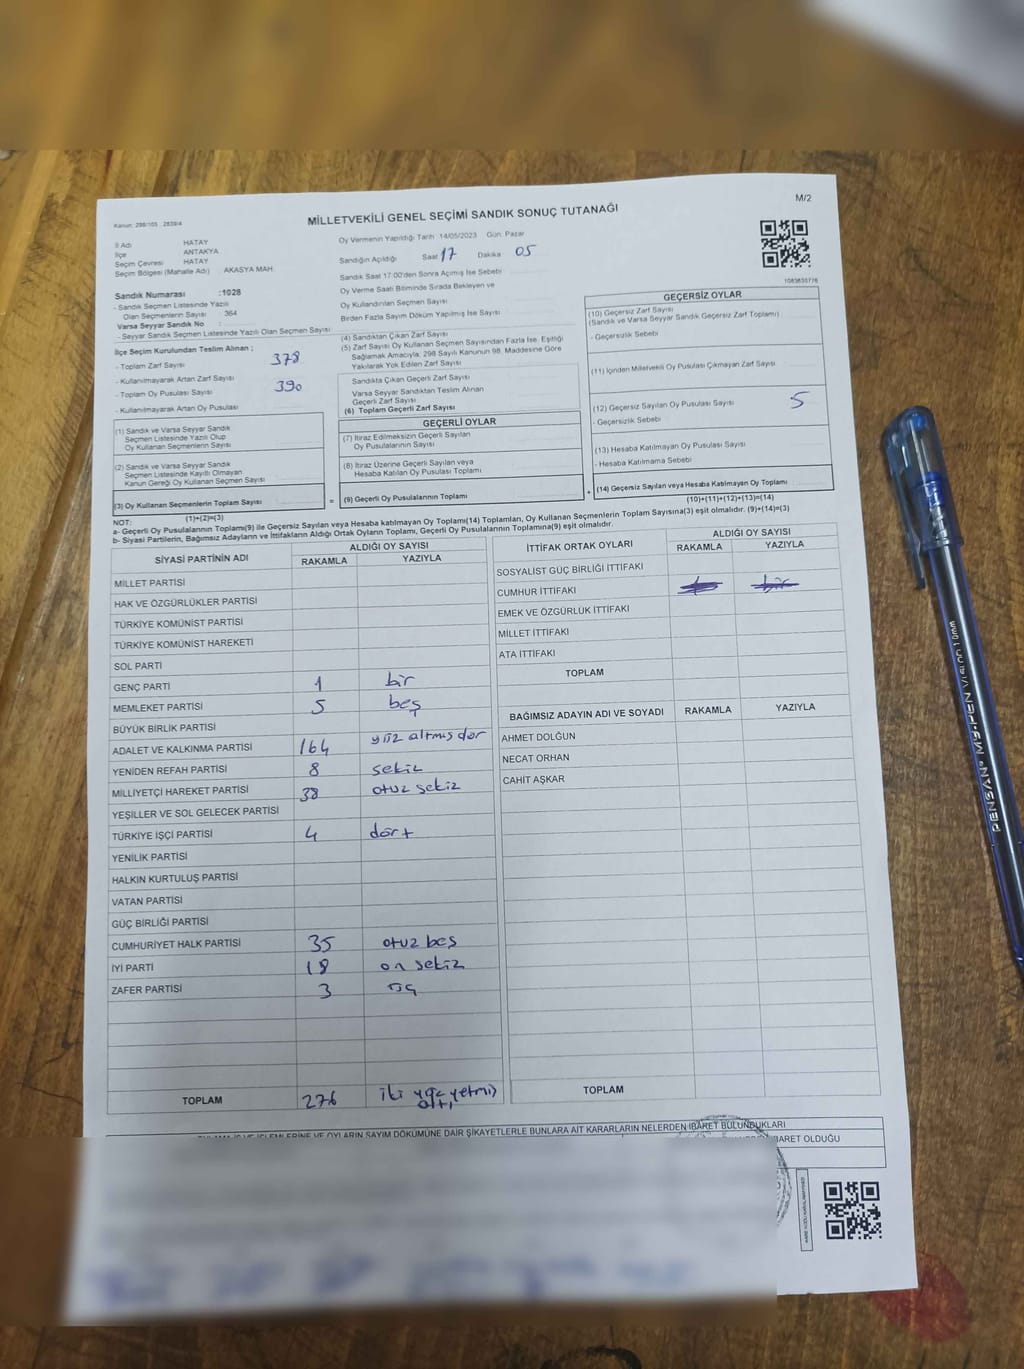 M/2
Kanun: 298/105 2839/4
MİLLETVEKİLİ GENEL SEÇİMİ SANDIK SONUÇ TUTANAĞI
İl Adı HATAY
İlçe ANTAKYA
Seçim Çevresi HATAY
Seçim Bölgesi (Mahalle Adı) AKASYA MAH.
Oy Vermenin Yapıldığı Tarih 14/05/2023 Gün: Pazar
Sandığın Açıldığı Saat 17 Dakika 05
Sandık Saat 17.00'den Sonra Açımış İse Sebebi
Oy Verme Saati Bitiminde Sırada Bekleyen ve
Oy Kullandırılan Seçmen Sayısı
Birden Fazla Sayım Döküm Yapılmış İse Sayısı
1083835776
Sandık Numarası :1028
- Sandık Seçmen Listesinde Yazılı
Olan Seçmenlerin Sayısı 364
Varsa Seyyar Sandık No :
- Seyyar Sandık Seçmen Listesinde Yazılı Olan Seçmen Sayısı
İlçe Seçim Kurulundan Teslim Alınan ;
- Toplam Zarf Sayısı 378
- Kullanılmayarak Artan Zarf Sayısı
- Toplam Oy Pusulası Sayısı 390
- Kullanılmayarak Artan Oy Pusulası
(1) Sandık ve Varsa Seyyar Sandık
Seçmen Listesinde Yazılı Olup
Oy Kullanan Seçmenlerin Sayısı
(2) Sandık ve Varsa Seyyar Sandık
Seçmen Listesinde Kayıtlı Olmayan
Kanun Gereği Oy Kullanan Seçmen Sayısı
(3) Oy Kullanan Seçmenlerin Toplam Sayısı
(1)+(2)=(3)
(4) Sandıktan Çıkan Zarf Sayısı
(5) Zarf Sayısı Oy Kullanan Seçmen Sayısından Fazla İse, Eşitliği
Sağlamak Amacıyla, 298 Sayılı Kanunun 98. Maddesine Göre
Yakılarak Yok Edilen Zarf Sayısı
Sandıkta Çıkan Geçerli Zarf Sayısı
Varsa Seyyar Sandıktan Teslim Alınan
Geçerli Zarf Sayısı
(6) Toplam Geçerli Zarf Sayısı
GEÇERLİ OYLAR
(7) İtiraz Edilmeksizin Geçerli Sayılan
Oy Pusulalarının Sayısı
(8) İtiraz Üzerine Geçerli Sayılan veya
Hesaba Katılan Oy Pusulası Toplamı
= (9) Geçerli Oy Pusulalarının Toplamı +
GEÇERSİZ OYLAR
(10) Geçersiz Zarf Sayısı
(Sandık ve Varsa Seyyar Sandık Geçersiz Zarf Toplamı)
- Geçersulik Sebebi
(11) İçinden Milletvekili Oy Pusulası Çıkmayan Zarf Sayısı
(12) Geçersiz Sayılan Oy Pusulası Sayısı 5
- Geçersizlik Sebebi
(13) Hesaba Katılmayan Oy Pusulası Sayısı
- Hesaba Katılmama Sebebi
(14) Geçersiz Sayılan veya Hesaba Katılmayan Oy Toplamı
(10)+(11)+(12)+(13)=(14)
NOT:
a- Geçerli Oy Pusulalarının Toplamı(9) ile Geçersiz Sayılan veya Hesaba katılmayan Oy Toplamı(14) Toplamları, Oy Kullanan Seçmenlerin Toplam Sayısına(3) eşit olmalıdır. (9)+(14)=(3)
b- Siyasi Partilerin, Bağımsız Adayların ve İttifakların Aldığı Ortak Oyların Toplamı, Geçerli Oy Pusulalarının Toplamına(9) eşit olmalıdır.
SİYASİ PARTİNİN ADI ALDIĞI OY SAYISI
RAKAMLA YAZIYLA
MİLLET PARTİSİ
HAK VE ÖZGÜRLÜKLER PARTİSİ
TÜRKİYE KOMÜNİST PARTİSİ
TÜRKİYE KOMÜNİST HAREKETİ
SOL PARTİ
GENÇ PARTİ 1 bir
MEMLEKET PARTİSİ 5 beş
BÜYÜK BİRLİK PARTİSİ
ADALET VE KALKINMA PARTİSİ 164 yüz altmış dör
YENİDEN REFAH PARTİSİ 8 sekiz
MİLLİYETÇİ HAREKET PARTİSİ 38 otuz sekiz
YEŞİLLER VE SOL GELECEK PARTİSİ
TÜRKİYE İŞÇİ PARTİSİ 4 dört
YENİLİK PARTİSİ
HALKIN KURTULUŞ PARTİSİ
VATAN PARTİSİ
GÜÇ BİRLİĞİ PARTİSİ
CUMHURİYET HALK PARTİSİ 35 otuz beş
İYİ PARTİ 18 on sekiz
ZAFER PARTİSİ 3 üç
TOPLAM 276 iki yüz yetmiş
altı
İTTİFAK ORTAK OYLARI ALDIĞI OY SAYISI
RAKAMLA YAZIYLA
SOSYALİST GÜÇ BİRLİĞİ İTTİFAKI
CUMHUR İTTİFAKI bir
EMEK VE ÖZGÜRLÜK İTTİFAKI
MİLLET İTTİFAKI
ATA İTTİFAKI
TOPLAM
BAĞIMSIZ ADAYIN ADI VE SOYADI RAKAMLA YAZIYLA
AHMET DOLĞUN
NECAT ORHAN
CAHİT AŞKAR
TOPLAM
OYLARIN SAYIM DÖKÜMÜNE DAİR ŞİKAYETLERLE BUNLARA AİT KARARLARIN NELERDEN İBARET BULUNDUKLARI
İBARET OLDUĞU
PENSAN MY-PEN 1.0mm